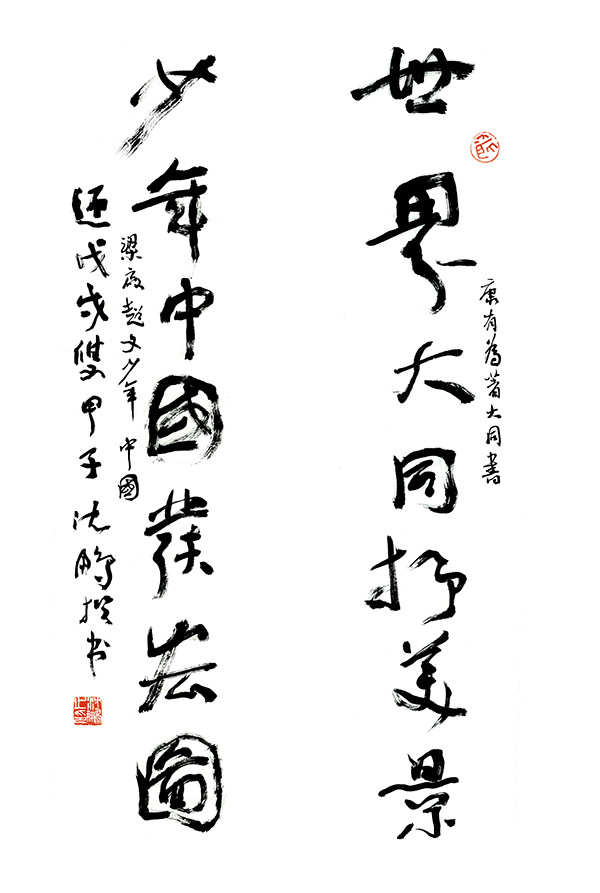 世界大同抒美景
康有為著大同書
少年中國發宏圖
梁啟超文少年中國
戊戌雙甲子沈鵬撰书